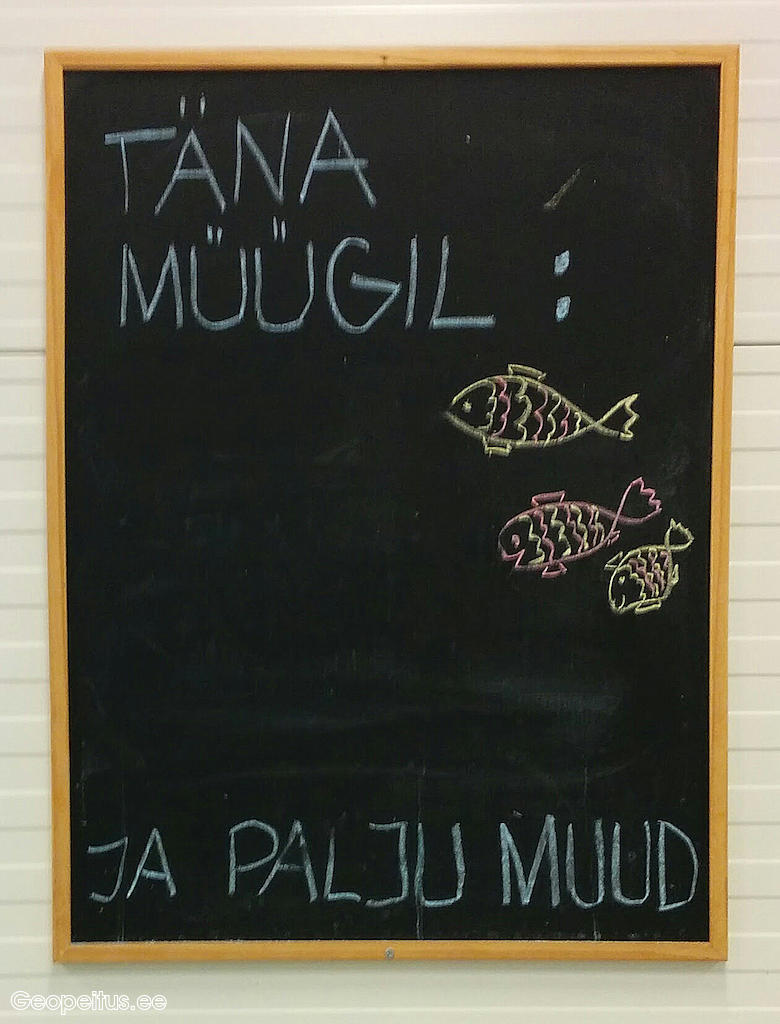 TÄNA
MÜÜGIL :
JA PALJU MUUD
Geopeitus.ee